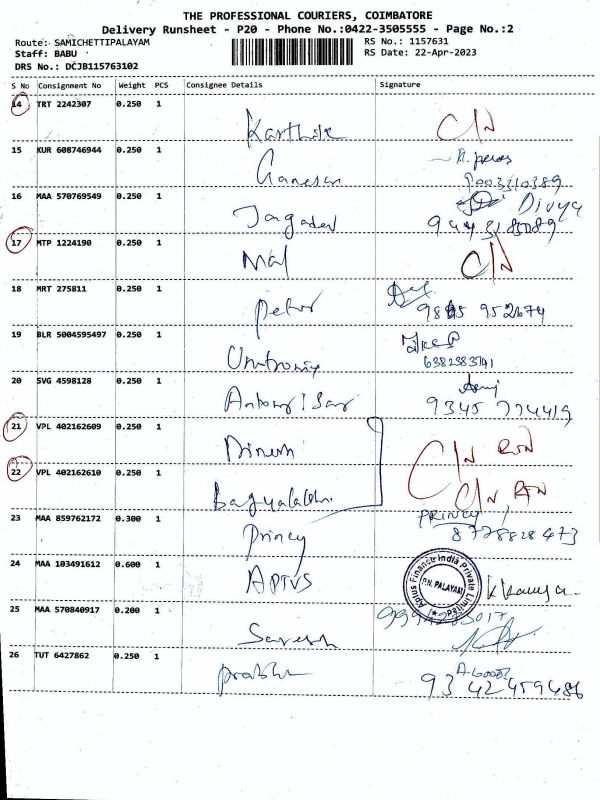 THE PROFESSIONAL COURIERS, COIMBATORE
Delivery Runsheet - P20 - Phone No.:0422-3505555 - Page No.:2
Route: SAMICHETTIPALAYAM
RS No.: 1157631
Staff: BABU
RS Date: 22-Apr-2023
DRS No.: DCJB115763102
S No Consignment No Weight PCS Consignee Details Signature
14 TRT 2242307 0.250 1 Karthik C/N
15 KUR 608746944 0.250 1 Ganesan
16 MAA 570769549 0.250 1 Jagadev Divya
17 MTP 1224190 0.250 1 Mal C/N
18 MRT 275811 0.250 1 Peter
19 BLR 5004595497 0.250 1
20 SVG 4598128 0.250 1 Antony
21 VPL 402162609 0.250 1 Dinesh C/N RTN
22 VPL 402162610 0.250 1 C/N RTN
23 MAA 859762172 0.300 1 Princy PRINCY
8778828473
24 MAA 103491612 0.600 1 APTUS
Aptus Finance India Private Limited
P.N. PALAYAM
25 MAA 570840917 0.200 1
26 TUT 6427862 0.250 1 Prabhu